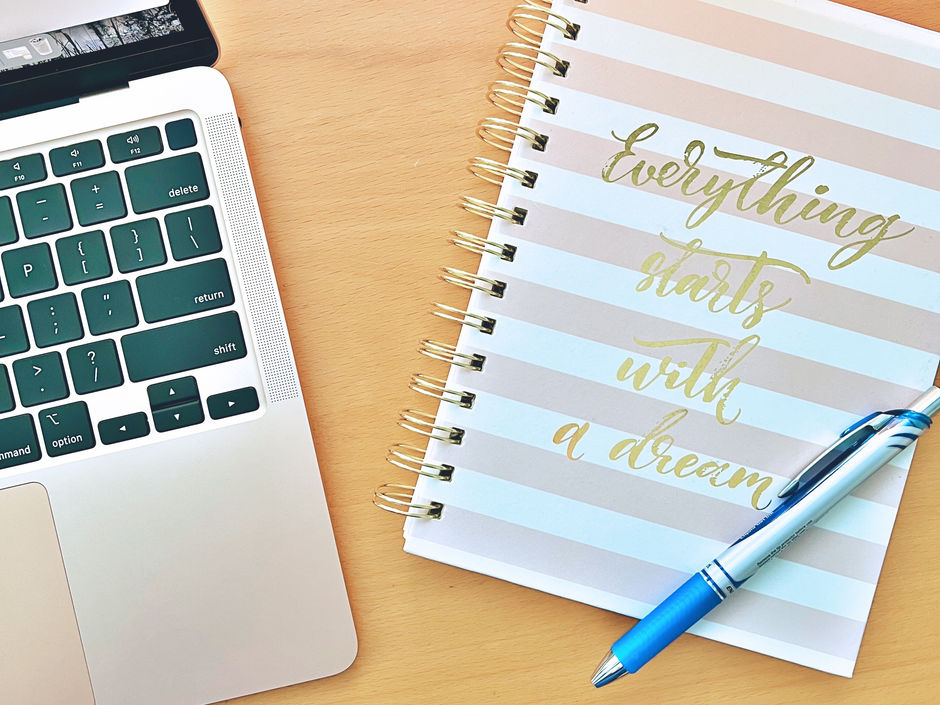 F10
F11
F12
delete
— -
+ =
P
{ [
} ]
| \
return
: ;
" '
shift
> .
? /
option
Everything
starts
with
a dream